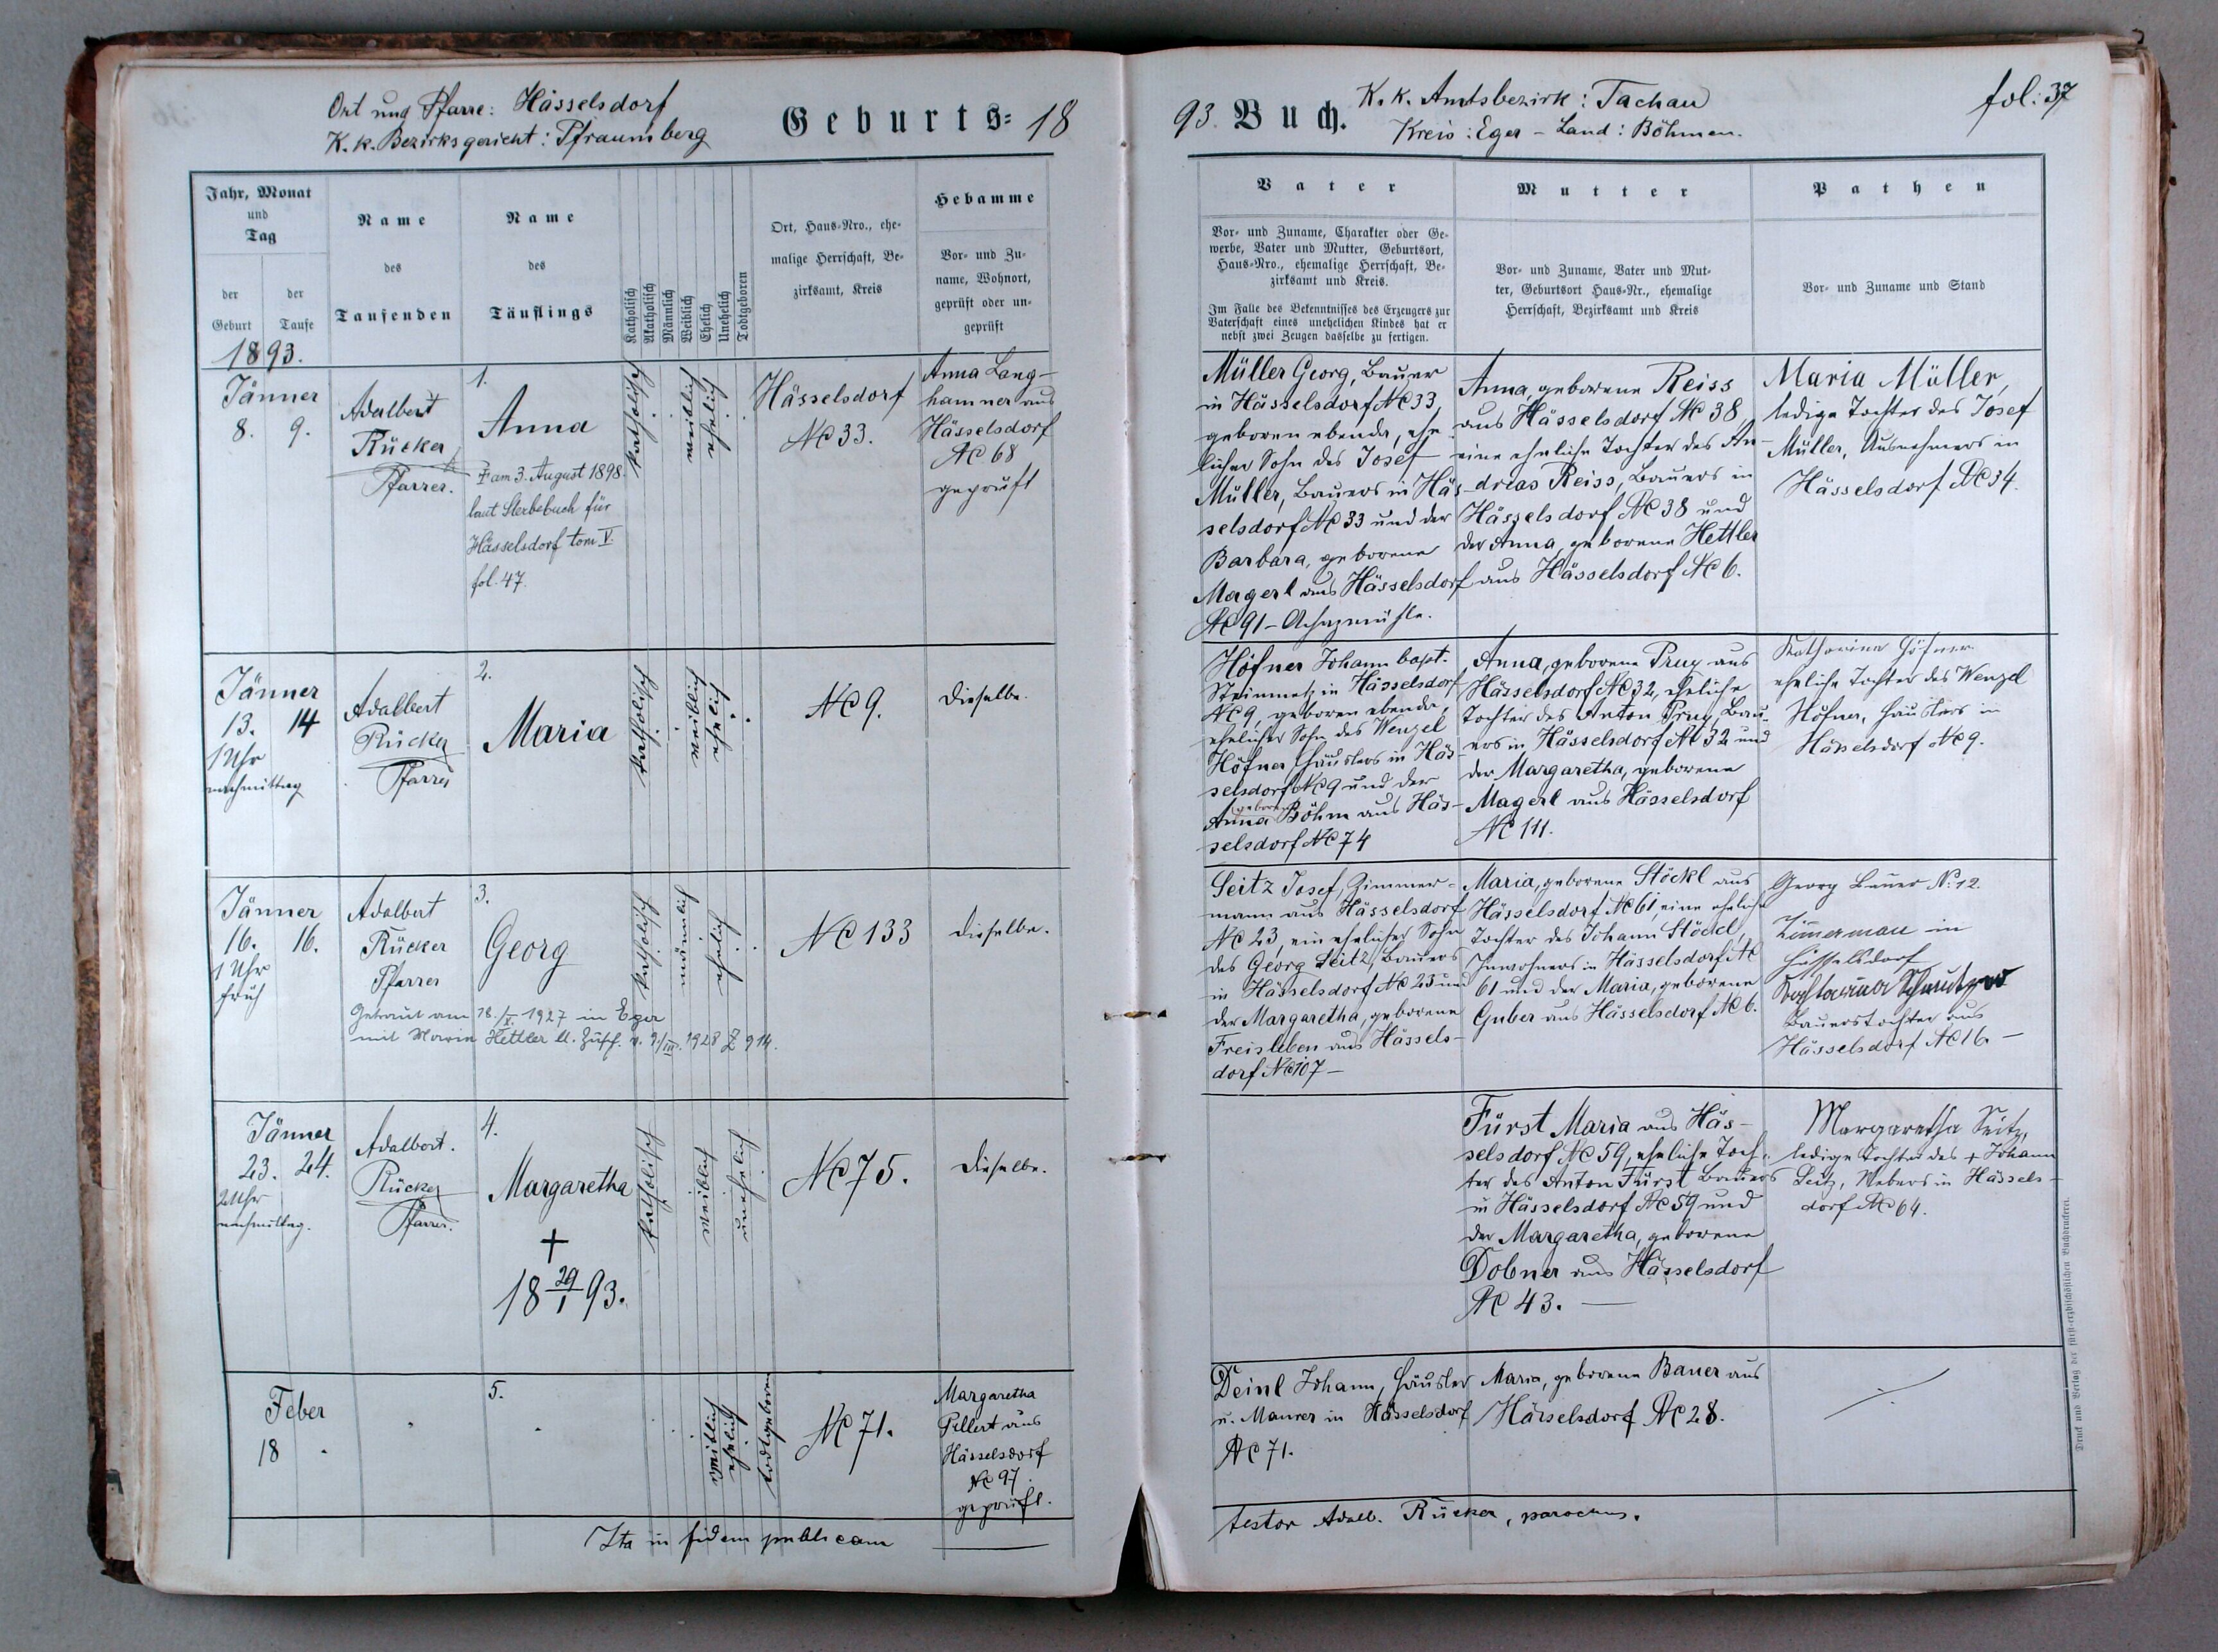 Ort und Pfarre: Hässelsdorf
K. k. Bezirksgericht: Pfraumberg
Geburts- 18
93. Buch.
K. k. Amtsbezirk: Tachau
Kreis: Eger – Land: Böhmen.
fol: 37
Jahr, Monat
und
Tag
der
Geburt
der
Taufe
Name
des
Taufenden
Name
des
Täuflings
Katholisch
Akatholisch
Männlich
Weiblich
Ehelich
Unehelich
Todtgeboren
Ort, Haus-Nro., ehe-
malige Herrschaft, Be-
zirksamt, Kreis
Hebamme
Vor- und Zu-
name, Wohnort,
geprüft oder un-
geprüft
Vater
Vor- und Zuname, Charakter oder Ge-
werbe, Vater und Mutter, Geburtsort,
Haus-Nro., ehemalige Herrschaft, Be-
zirksamt und Kreis.
Im Falle des Bekenntnisses des Erzeugers zur
Vaterschaft eines unehelichen Kindes hat er
nebst zwei Zeugen dasselbe zu fertigen.
Mutter
Vor- und Zuname, Vater und Mut-
ter, Geburtsort Haus-Nr., ehemalige
Herrschaft, Bezirksamt und Kreis
Pathen
Vor- und Zuname und Stand
1893.
Jänner
8. 9.
Adalbert
Rücker
Pfarrer.
1.
Anna
† am 3. August 1898
laut Sterbebuch für
Hässelsdorf tom V.
fol. 47.
katholisch
weiblich
ehelich
Hässelsdorf
No 33.
Anna Lang-
hammer aus
Hässelsdorf
No 68
geprüft
Müller Georg, Bauer
in Hässelsdorf No 33,
geboren ebenda, ehe-
licher Sohn des Josef
Müller, Bauers in Häs-
selsdorf No 33 und der
Barbara, geborene
Magerl aus Hässelsdorf
No 91 –
Anna, geborene Reiss
aus Hässelsdorf No 38
eine eheliche Tochter des An-
dreas Reiss, Bauers in
Hässelsdorf No 38 und
der Anna, geborene Hettler
aus Hässelsdorf No 6.
Maria Müller,
ledige Tochter des Josef
Müller, Ausnehmers in
Hässelsdorf No 34.
Jänner
13. 14
1 Uhr
nachmittag
Adalbert
Rücker
Pfarrer
2.
Maria
katholisch
weiblich
ehelich
No 9.
dieselbe.
Höfner Johann bapt.
Steinmetz in Hässelsdorf
No 9, geboren ebenda,
ehelicher Sohn des Wenzel
Höfner, Häuslers in Häs-
selsdorf No 9 und der
Anna geborene Böhm aus Häs-
selsdorf No 74
Anna, geborene Prux aus
Hässelsdorf No 32, eheliche
Tochter des Anton Prux, Bau-
ers in Hässelsdorf No 32 und
der Margaretha, geborene
Magerl aus Hässelsdorf
No 111.
Katharina Höfner
eheliche Tochter des Wenzel
Höfner, Häuslers in
Hässelsdorf No 9.
Jänner
16. 16.
1 Uhr
früh
Adalbert
Rücker
Pfarrer
3.
Georg
katholisch
männlich
ehelich
No 133
dieselbe.
Getraut am 18./X. 1927 in Eger
mit Maria Hettler lt. Zusch. v. 9/III. 1928 Z 914.
Seitz Josef, Zimmer-
mann aus Hässelsdorf
No 23, ein ehelicher Sohn
des Georg Seitz, Bauers
in Hässelsdorf No 23 und
der Margaretha, geborene
Freisleben aus Hässels-
dorf No 107 –
Maria, geborene Stöckl aus
Hässelsdorf No 61, eine eheliche
Tochter des Johann Stöckl,
Inwohners in Hässelsdorf No
61 und der Maria, geborene
Guber aus Hässelsdorf No 6.
Georg Bauer No. 12.
Zimerman in
Hässelsdorf
Bauerstochter aus
Hässelsdorf No 16. –
Jänner
23. 24.
2 Uhr
nachmittag.
Adalbert.
Rücker
Pfarrer.
4.
Margaretha
+
18 29/1 93.
katholisch
weiblich
unehelich
No 75.
dieselbe.
Fürst Maria aus Häs-
selsdorf No 59, eheliche Toch-
ter des Anton Fürst Bauers
in Hässelsdorf No 59 und
der Margaretha, geborene
Dobner aus Hässelsdorf
No 43. –
Margaretha Seitz,
ledige Tochter des + Johann
Seitz, Webers in Hässels-
dorf No 64.
Feber
18
5.
weiblich
ehelich
todtgeboren
No 71.
Margaretha
Pillert aus
Hässelsdorf
No 97.
geprüft.
Deinl Johann, Häusler
u. Maurer in Hässelsdorf
No 71.
Maria, geborene Bauer aus
Hässelsdorf No 28.
Ita in fidem publicam
testor Adalb. Rücker, parochus.
Druck und Verlag der fürst-erzbischöflichen Buchdruckerei.